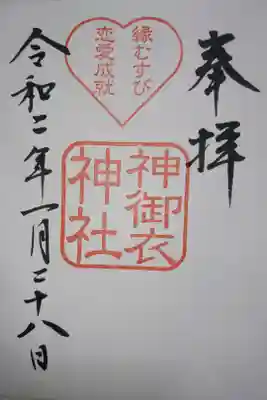 奉拝
縁むすび
恋愛成就
神御衣
神社
令和二年一月二十八日